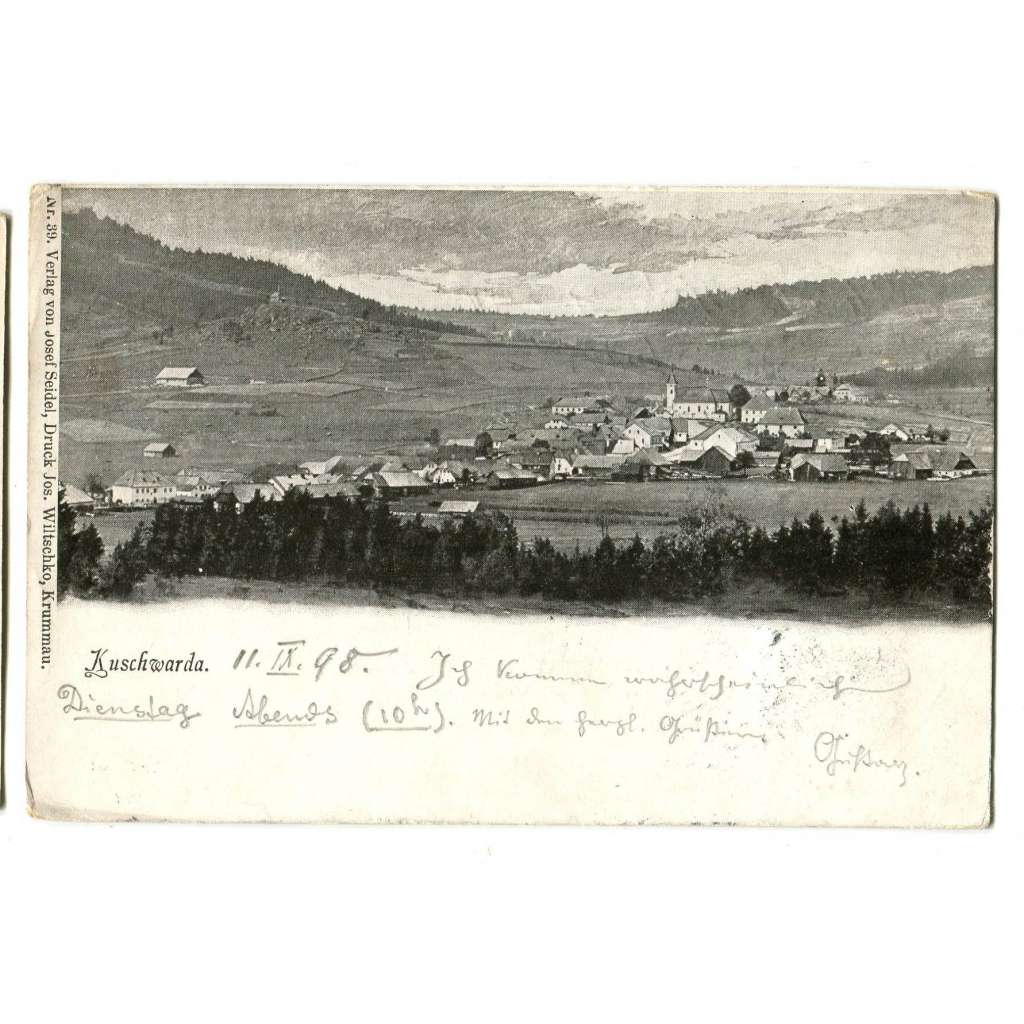 Nr. 39. Verlag von Josef Seidel, Druck Jos. Wiltschko, Krummau.
Kuschwarda. 11. IX. 98. Ich komme wahrscheinlich
Dienstag Abends (10h). Mit den herzl. Grüßen
Gustav.